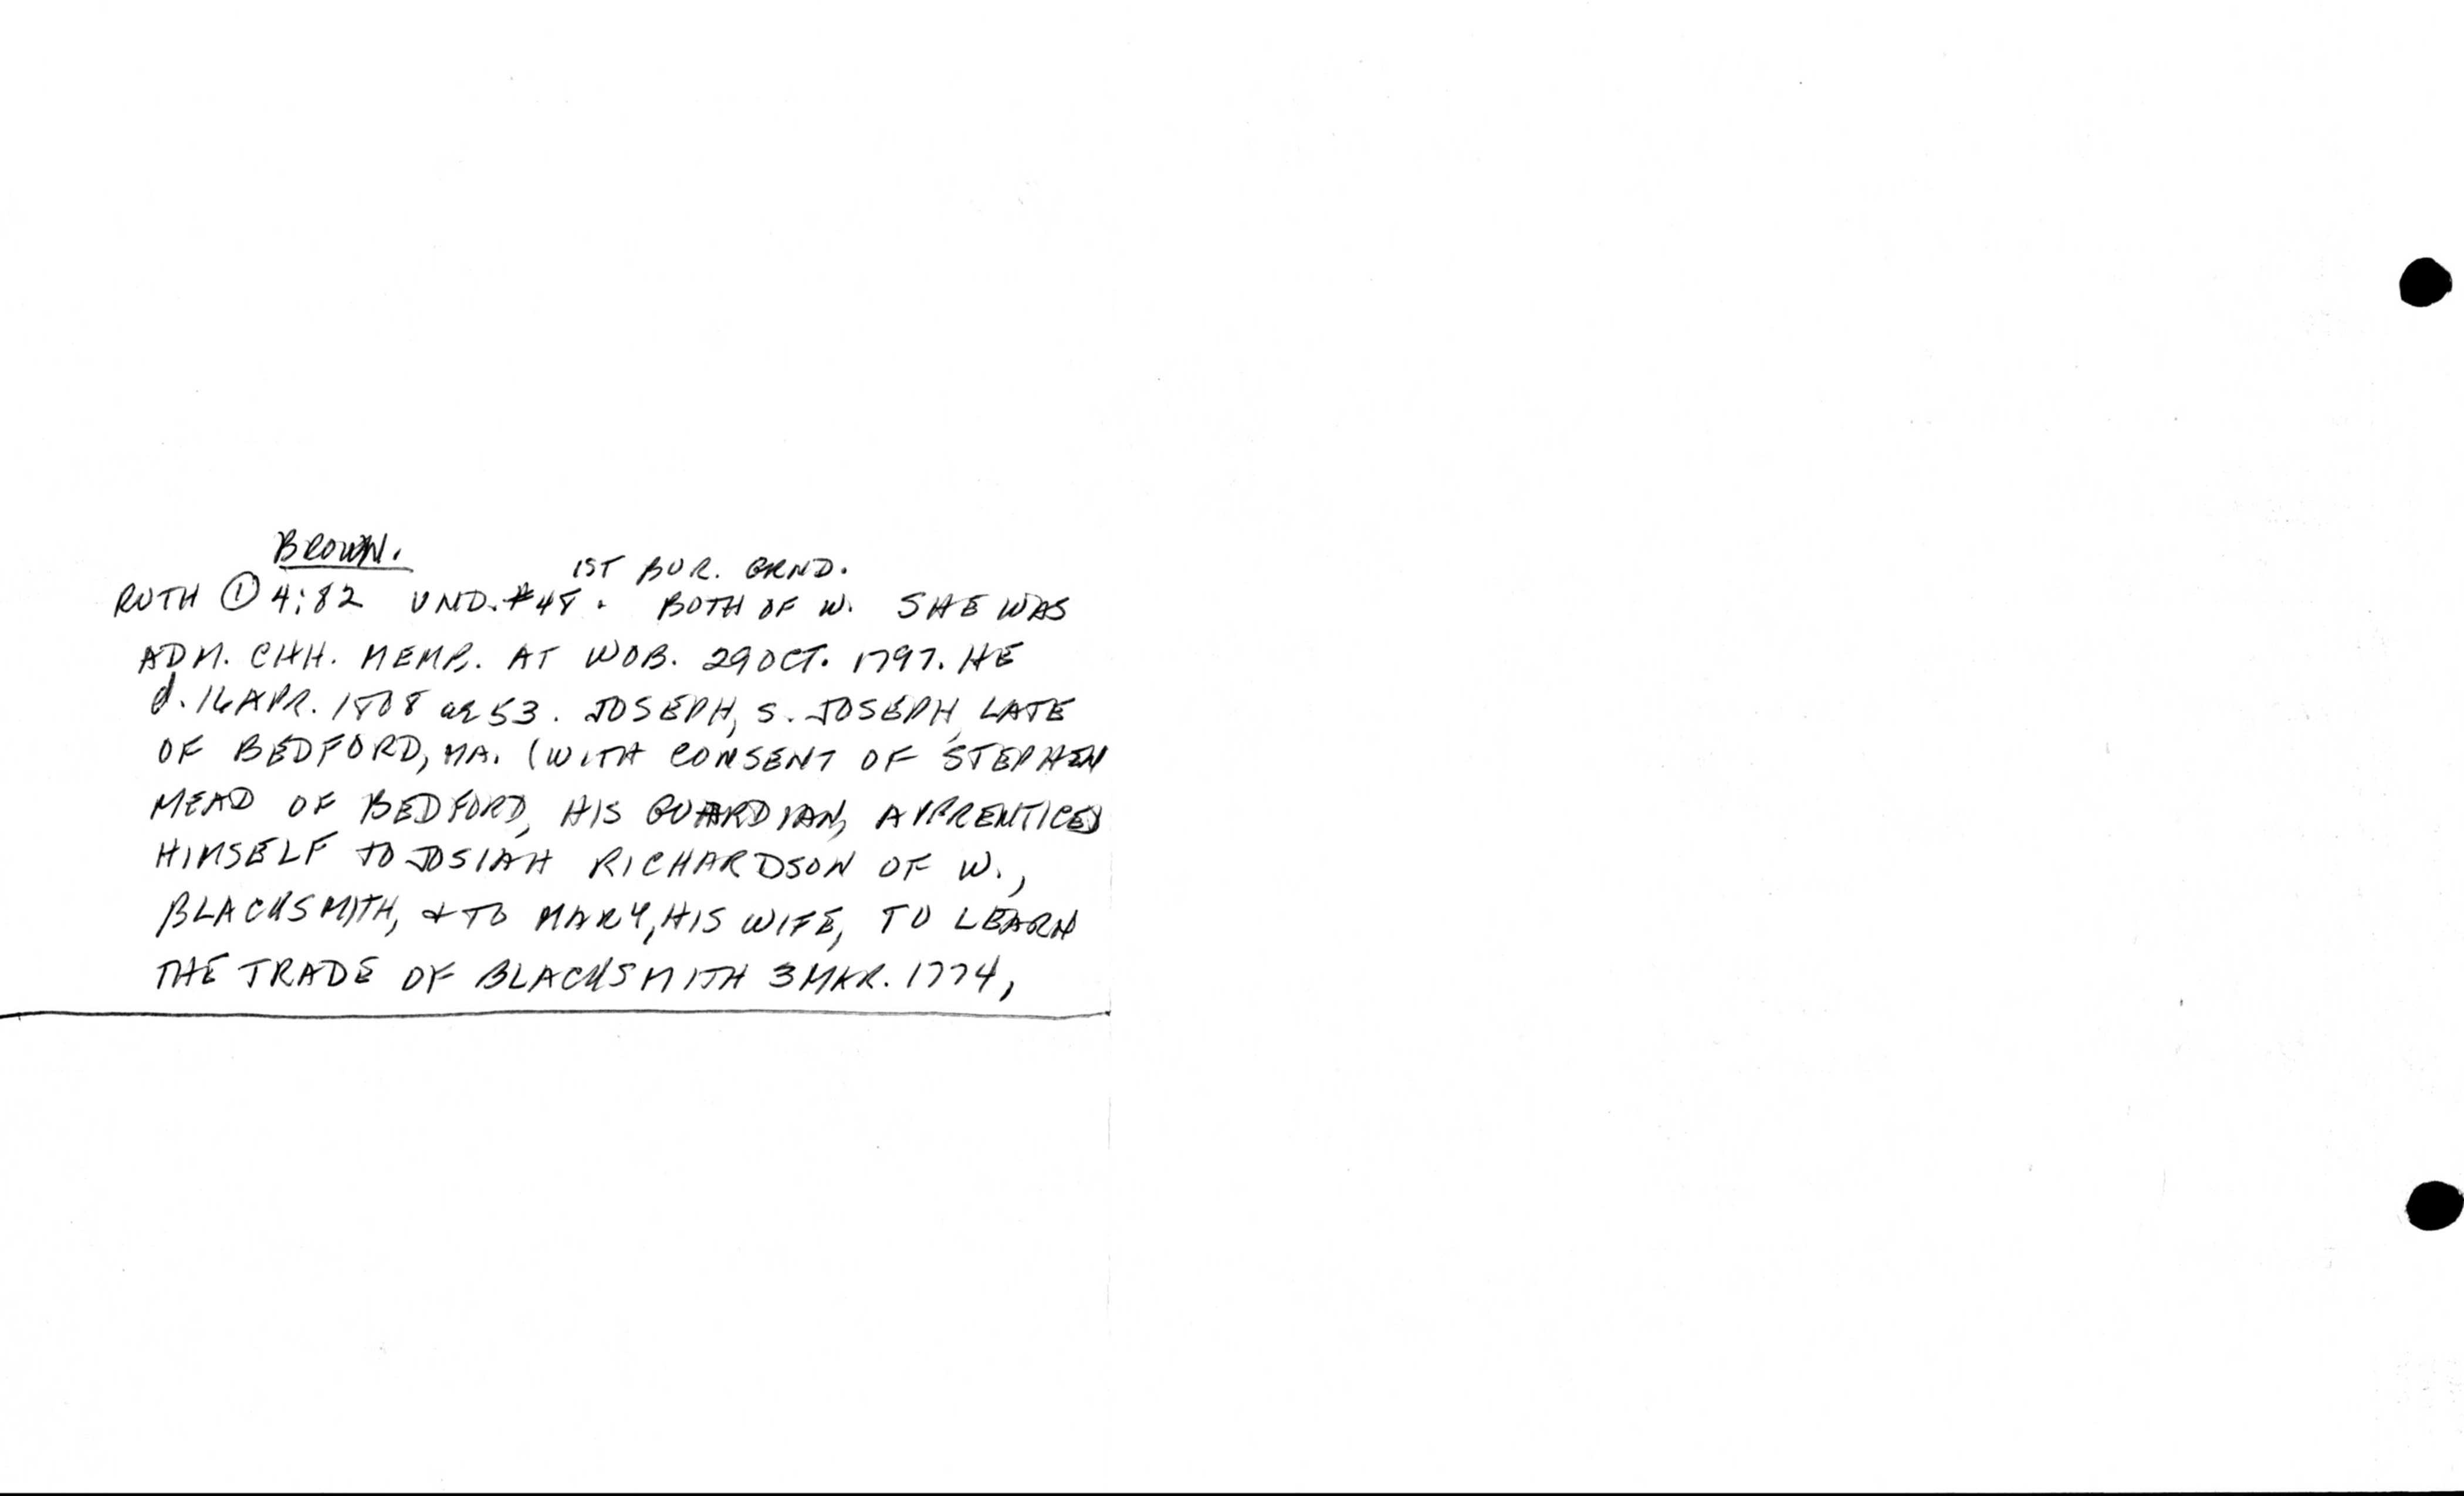 BROWN.
1ST BUR. GRND.
RUTH ① 4:82 UND. #48. BOTH OF W. SHE WAS
ADM. CHH. MEMB. AT WOB. 29 OCT. 1797. HE
d. 16 APR. 1808 ae 53. JOSEPH, S. JOSEPH, LATE
OF BEDFORD, MA. (WITH CONSENT OF STEPHEN
MEAD OF BEDFORD, HIS GUARDIAN, APPRENTICED
HIMSELF TO JOSIAH RICHARDSON OF W.,
BLACKSMITH, & TO MARY, HIS WIFE, TO LEARN
THE TRADE OF BLACKSMITH 3 MAR. 1774,